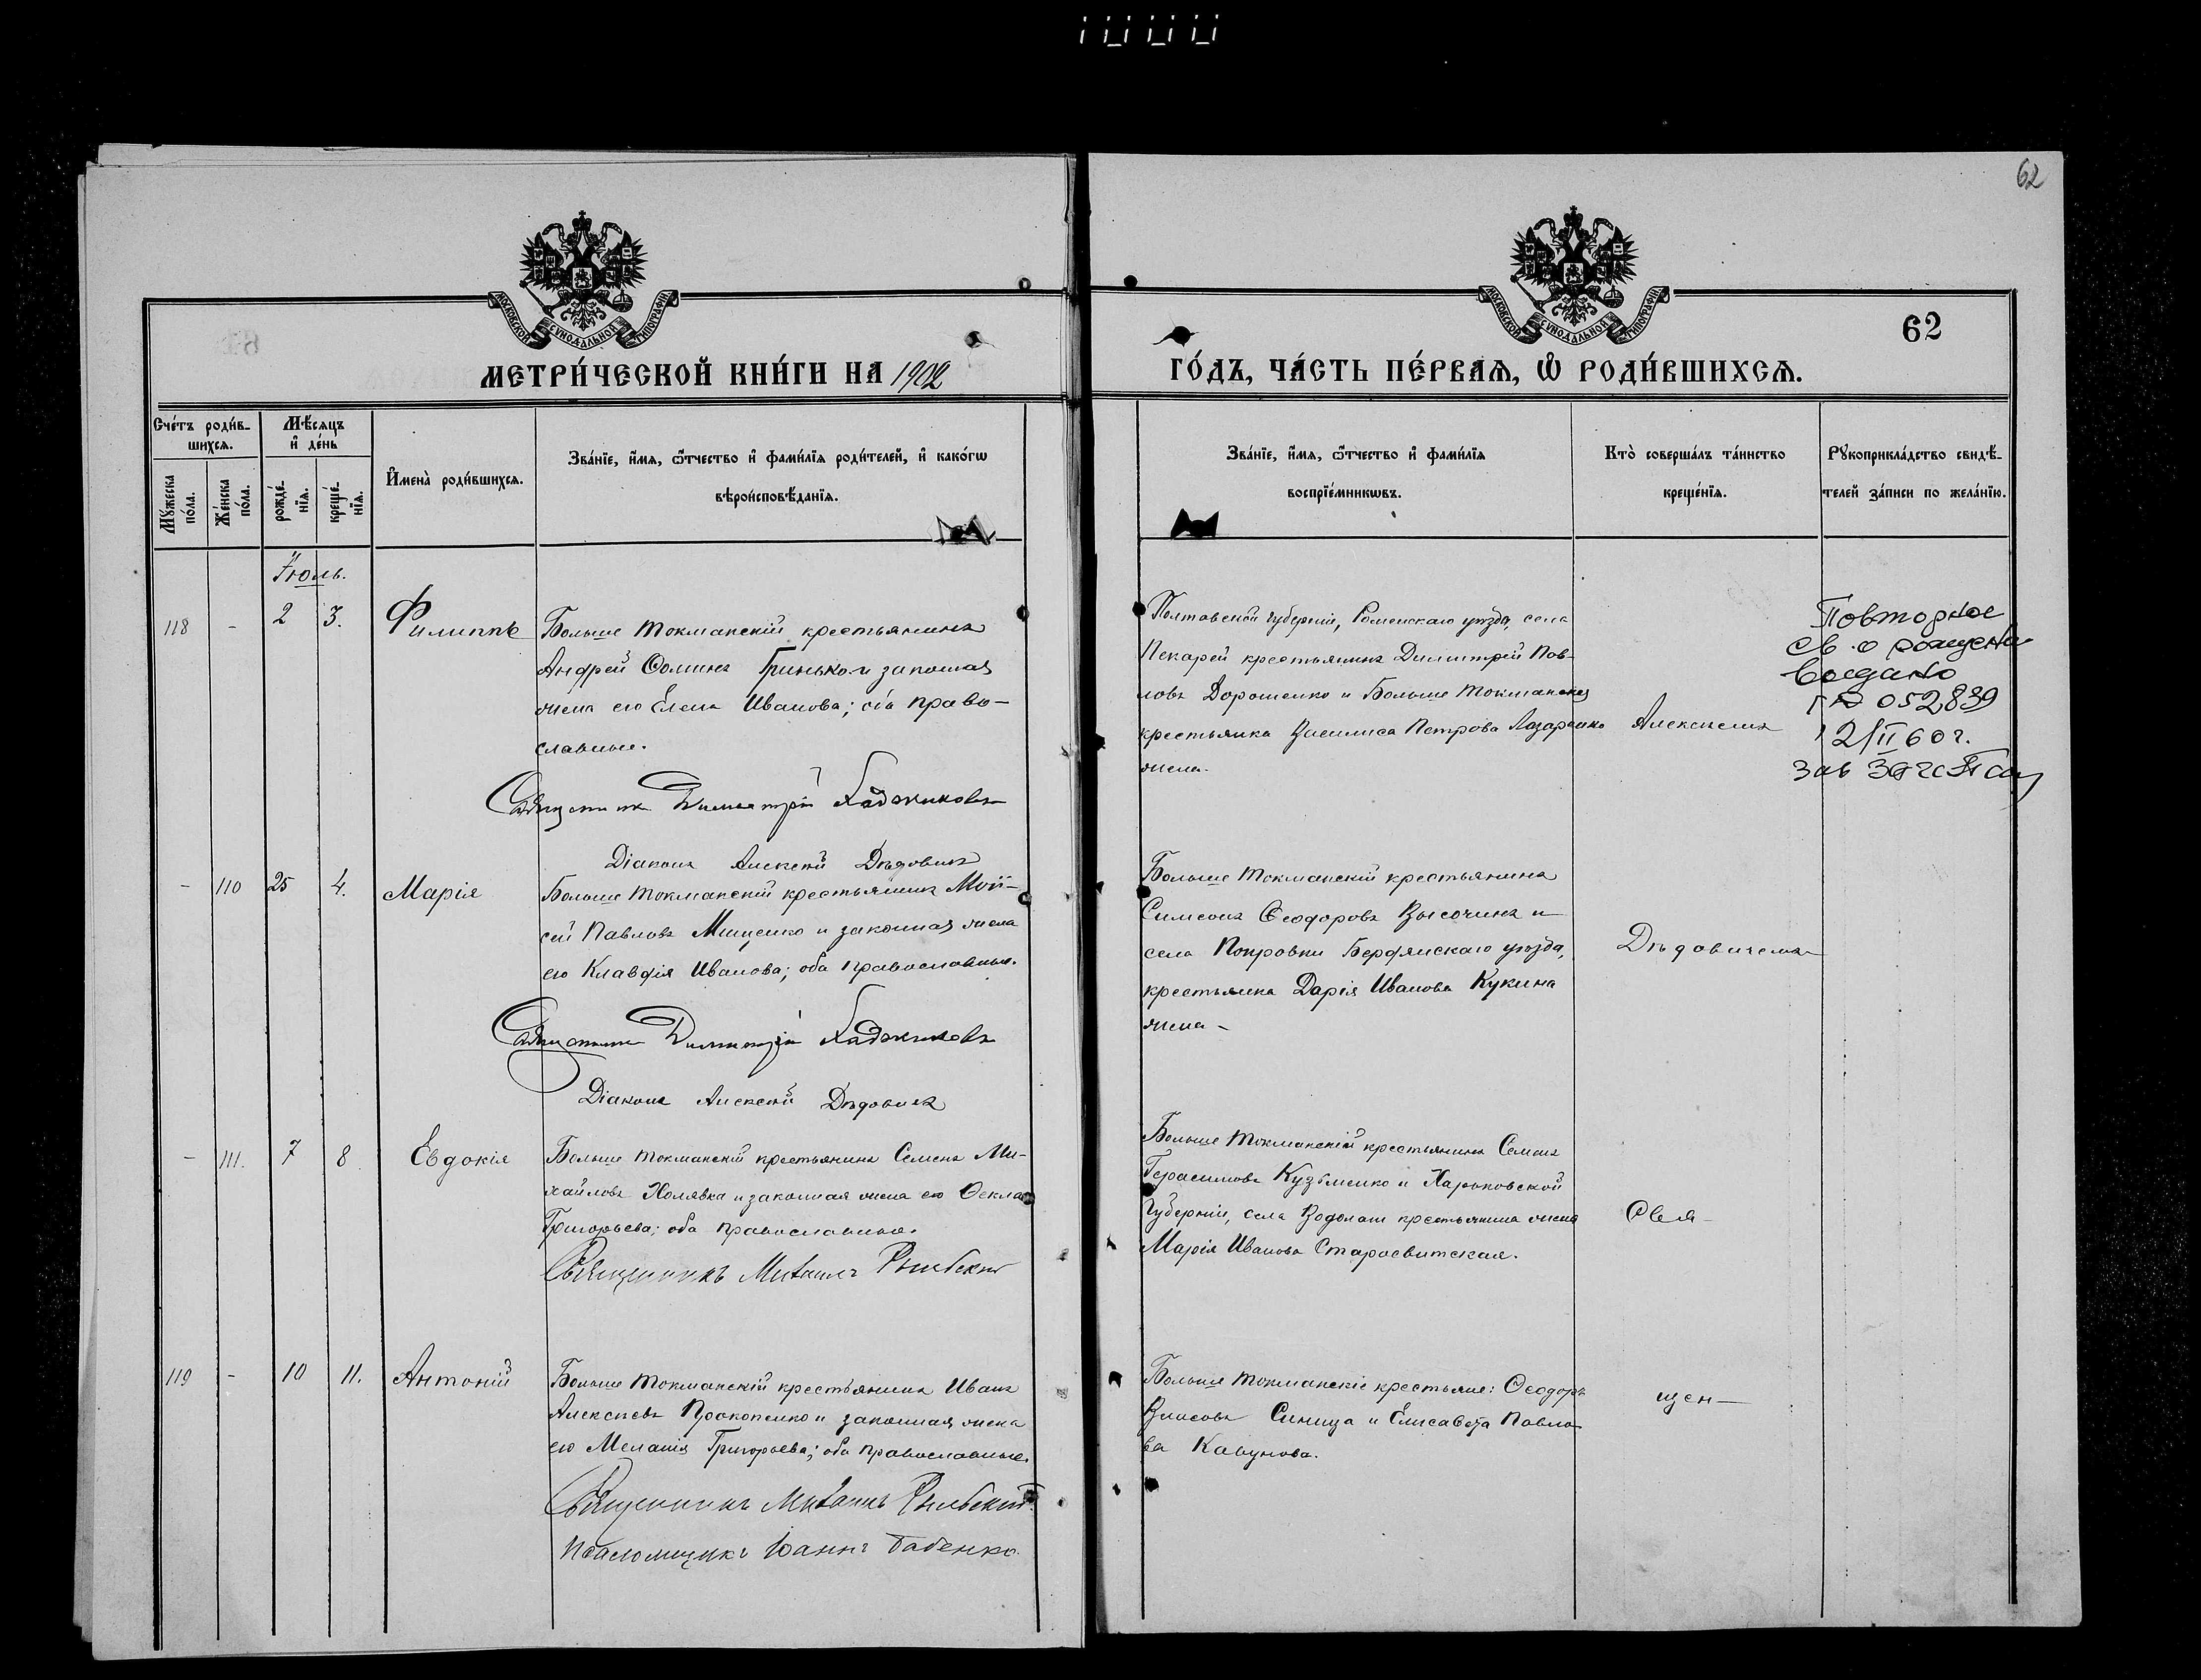 62
МОСКОВСКОЙ СѴНОДАЛЬНОЙ ТИПОГРАФІИ
МОСКОВСКОЙ СѴНОДАЛЬНОЙ ТИПОГРАФІИ
62
МЕТРИ́ЧЕСКОЙ КНИ́ГИ НА 1902
ГО́ДЪ, ЧА́СТЬ ПЕ́РВАѦ, Ѽ РОДИ́ВШИХСѦ.
Сче́тъ роди́в-
шихсѧ.
Мѣ́сяцъ
и҆ де́нь
И҆мена̀ роди́вшихсѧ.
Зва́нїе, и҆́мѧ, ѻ҆́тчество и҆ фами́лїѧ роди́телей, и҆ како́гѡ
вѣроисповѣ́данїѧ.
Мꙋ́жеска по́ла.
Же́нска по́ла.
рожде́-
нїѧ.
креще́-
нїѧ.
Зва́нїе, и҆́мѧ, ѻ҆́тчество и҆ фами́лїѧ
воспрїе́мникѡвъ.
Кто̀ соверша́лъ та́инство
креще́нїѧ.
Рꙋкоприкла́дство свидѣ́-
телей за́писи по жела́нїю.
Іюль.
118 - 2 3. Филиппъ
Больше Токмакскій крестьянинъ
Андрей Ѳоминъ Гринько и законная
жена его Елена Иванова; оба право-
славные.
Священникъ Димитрій Хаджиновъ
Діаконъ Алексѣй Дѣдовичъ
Полтавской губерніи, Роменскаго уѣзда, села
Пекарей крестьянинъ Димитрій Пав-
ловъ Дорошенко и Больше Токмакская
крестьянка Василиса Петрова Лазаренко
жена.
Алексѣемъ
Повторное
св. о рожден
выдано
052839
12/II 60 г.
зав ЗАГС
- 110 25 4. Марія
Больше Токмакскій крестьянинъ Мой-
сей Павловъ Мищенко и законная жена
его Клавдія Иванова; оба православные.
Священникъ Димитрій Хаджиновъ
Діаконъ Алексѣй Дѣдовичъ
Больше Токмакскій крестьянинъ
Симеонъ Ѳеодоровъ Высочинъ и
села Покровки Бердянскаго уѣзда,
крестьянка Дарія Иванова Кукина
жена -
Дѣдовичемъ
- 111. 7 8 Евдокія
Больше Токмакскій крестьянинъ Семенъ Ми-
хайловъ Холявка и законная жена его Ѳекла
Григорьева; оба православные.
Священникъ Михаилъ
Больше Токмакскій крестьянинъ Семенъ
Герасимовъ Кузьменко и Харьковской
Губерніи, села Водолаги крестьянина жена
Марія Иванова Старосвитская.
Свя-
119 - 10 11. Антоній
Больше Токмакскій крестьянинъ Иванъ
Алексѣевъ Прокопенко и законная жена
его Меланія Григорьева; оба православные.
Священникъ Михаилъ
Псаломщикъ Іоаннъ Бабенко.
Больше Токмакскіе крестьяне: Ѳеодоръ
Власовъ Синица и Елисавета Павло-
ва Кавунова.
щен-